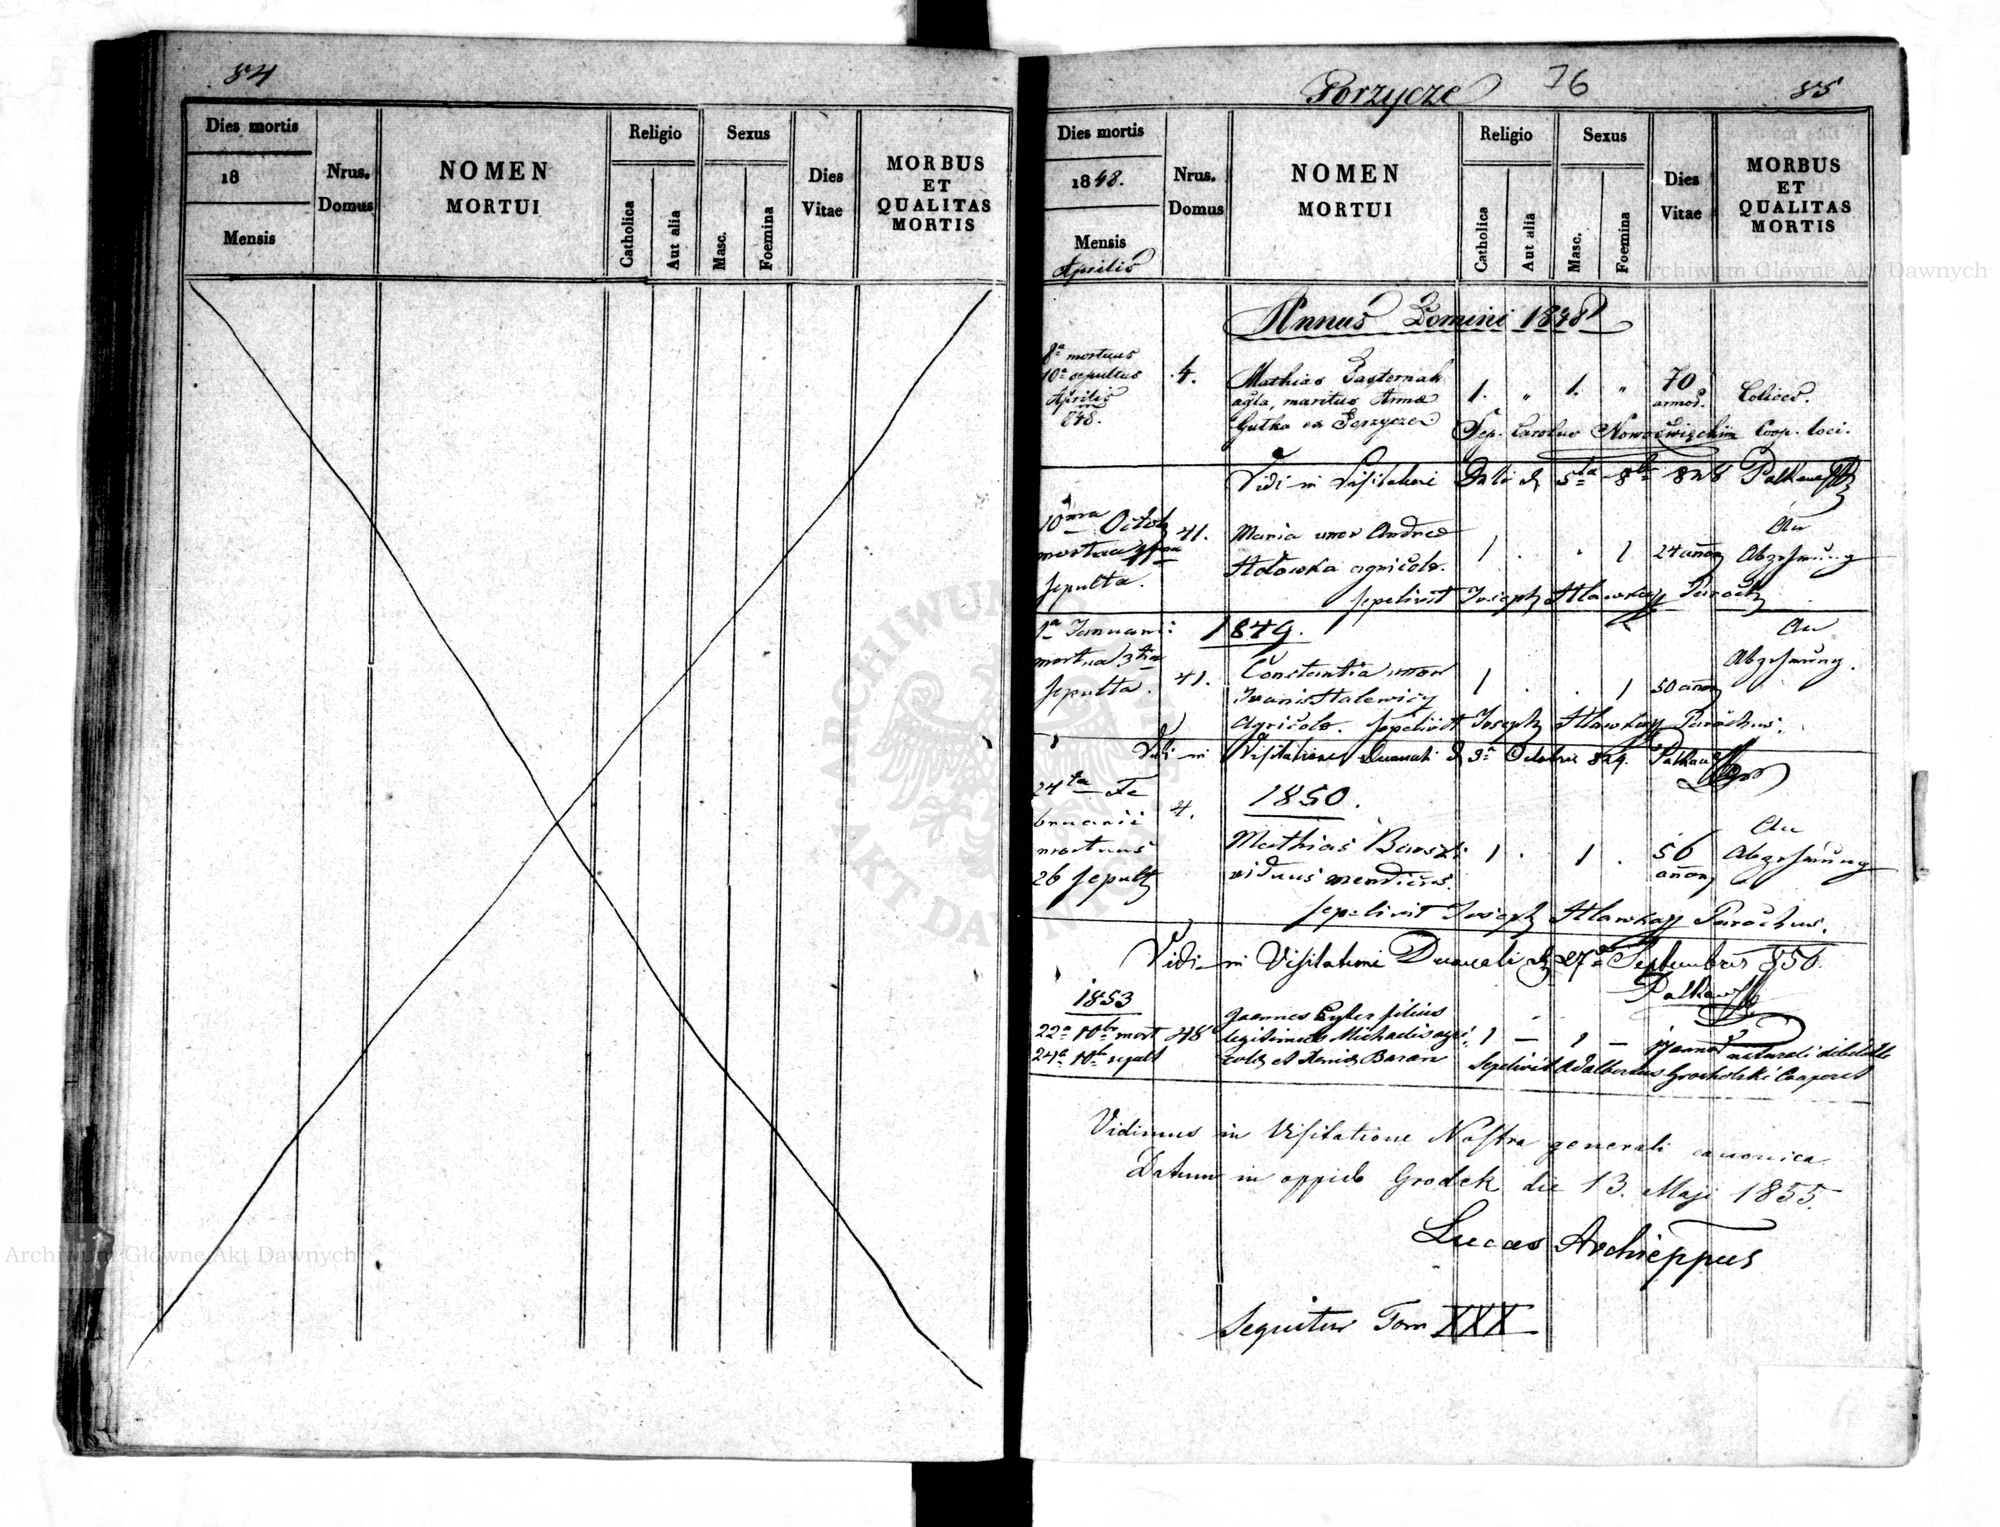 84
Dies mortis
18
Mensis
Nrus.
Domus
NOMEN
MORTUI
Religio
Catholica
Aut alia
Sexus
Masc.
Foemina
Dies
Vitae
MORBUS
ET
QUALITAS
MORTIS
Porzycze 76 85
Dies mortis
1848.
Mensis
Aprilis
Nrus.
Domus
NOMEN
MORTUI
Religio
Catholica
Aut alia
Sexus
Masc.
Foemina
Dies
Vitae
MORBUS
ET
QUALITAS
MORTIS
Annus Domini 1848
8a mortuus
10a sepultus
Aprilis
848.
4.
Mathias Pasternak
agla, maritus Annae
Gutka ex Porzycze
1. " 1. " 70
annor.
Colica.
Sep. Carolus Nowoświęchim Coop. loci.
Vidi in Visitatione 5ta 8br 848
10ma Octob
mortua
sepulta.
41.
Maria uxor Andreae
agricolae.
1 . . 1 24 annor
An
Abzehrung
sepelivit Joseph Hlawkay Paroch
1849.
1a Januarii
mortua 3tia
sepulta.
41.
Constantia uxor
Ivanis Halewicz
agricolae. sepelivit Joseph Hlawkay Parochus.
1 . . 1 50 annor
An
Abzehrung.
Vidi in Visitatione Decanali d 3a Octobris 849.
1850.
24ta Fe
bruarii
mortuus
26 sepult
4.
Mathias
viduus mendicus.
1 . 1 . 56
annor
An
Abzehrung
sepelivit Joseph Hlawkay Parochus.
Vidi in Visitatione Decanali 27a Septembris 850.
1853
22a 10br mort 48
24a 10br sepult
Joannes filius
legitimus Michaelis agri
colae et Baran
1 — 1 —
naturali debilitate
Sepelivit Adalbertus Grocholski Cooperat
Vidimus in Visitatione Nostra generali canonica
Datum in oppido Grodek die 13. Maji 1855.
Lucas Archieppus
Sequitur Tom XXX
Archiwum Główne Akt Dawnych
Archiwum Główne Akt Dawnych
ARCHIWUM GŁÓWNE AKT DAWNYCH